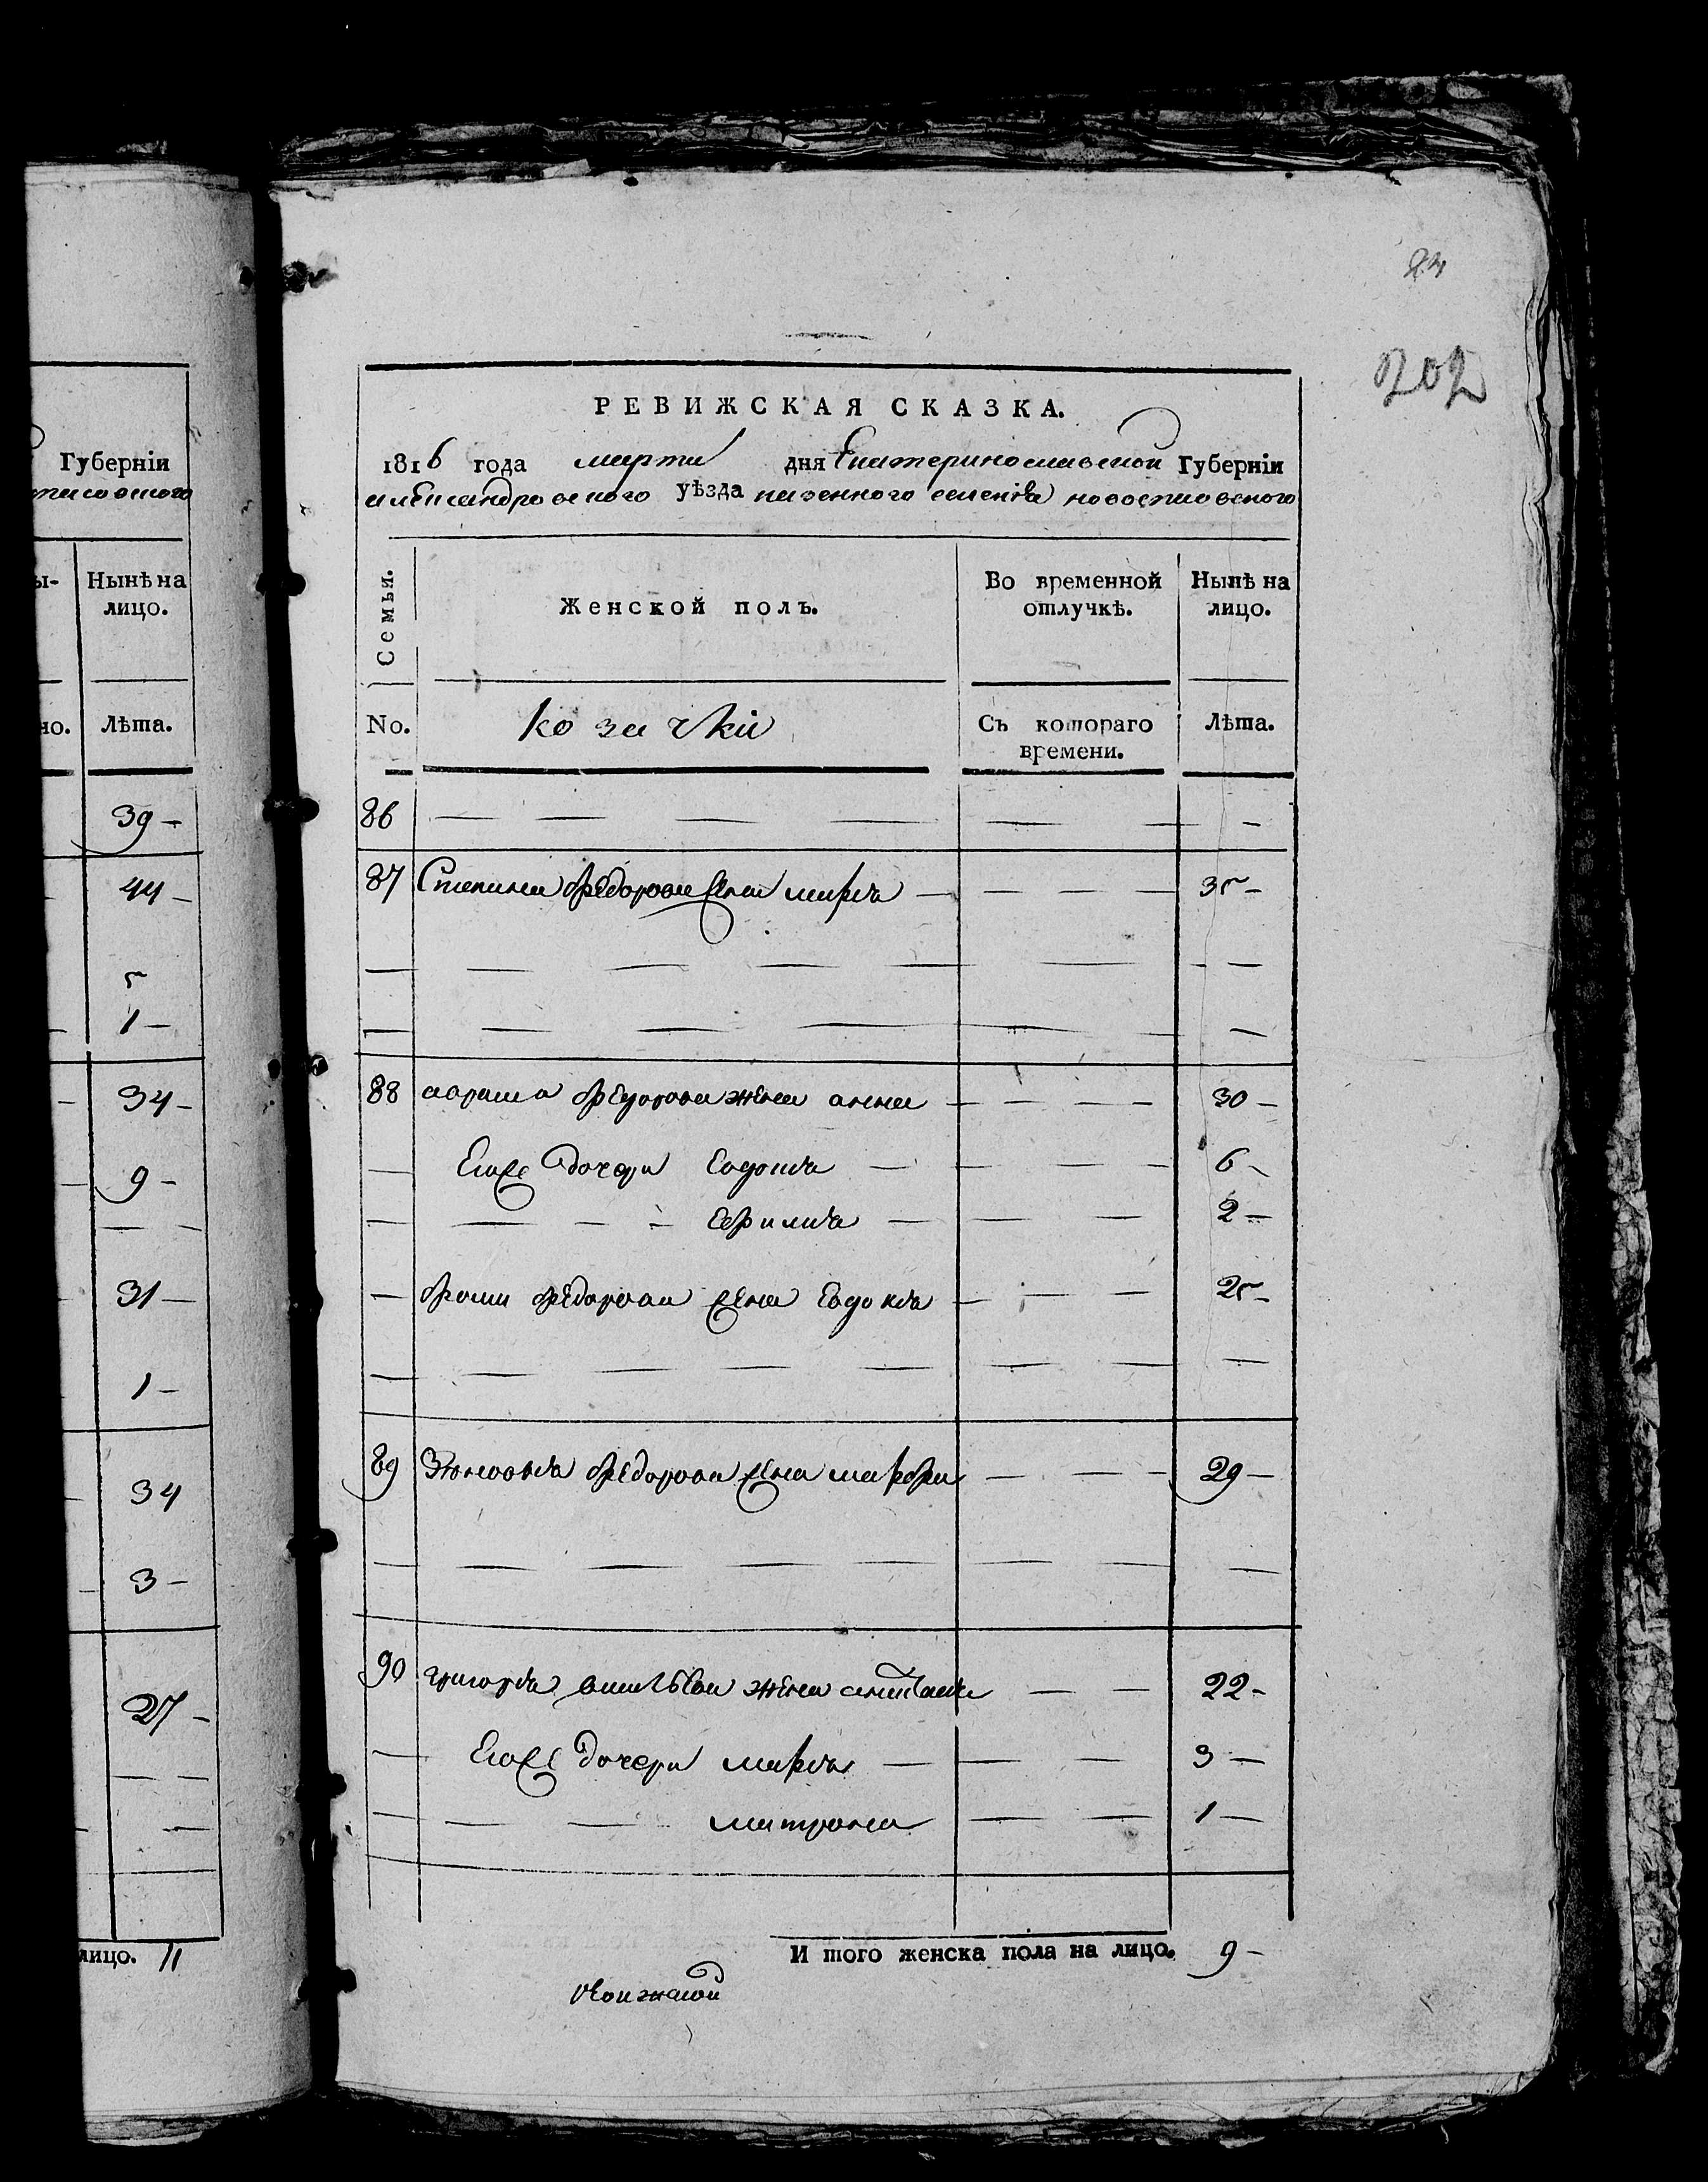 84
202
РЕВИЖСКАЯ СКАЗКА.
1816 года марта дня Екатеринославской Губернiи
александровского уѣзда казенного селенiя новоспасовского
Семьи.
Женской полъ.
Во временной отлучкѣ.
Нынѣ на лицо.
No.
козачки
Съ котораго времени.
Лѣта.
86 — — — — — — —
87 Степана федорова жена марья — — — — 35 —
88 абрама федорова жена анна — — — — 30 —
— Егоже дочери Евдокия — — — — 6 —
— — — — Ефимия — — — 2 —
— фомы федорова жена Евдокия — — — — 25 —
89 федорова жена марфа — — — 29 —
90 григорiя василЬева жена — — 22 —
— Егоже дочери марья — — — 3 —
— — — матрона — — 1 —
И того женска пола на лицо. 9 —
Губернiи
Нынѣ на лицо.
но. Лѣта.
39 —
44 —
5
1 —
34 —
9 —
31 —
1 —
34
3 —
27 —
лицо. 11